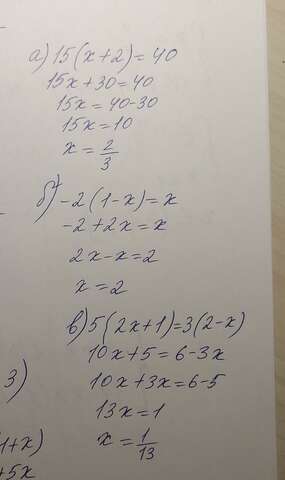 а) 15(x+2)=40
15x+30=40
15x=40-30
15x=10
x=2/3
б) -2(1-x)=x
-2+2x=x
2x-x=2
x=2
в) 5(2x+1)=3(2-x)
10x+5=6-3x
10x+3x=6-5
13x=1
x=1/13
3)
1+x)
+5x